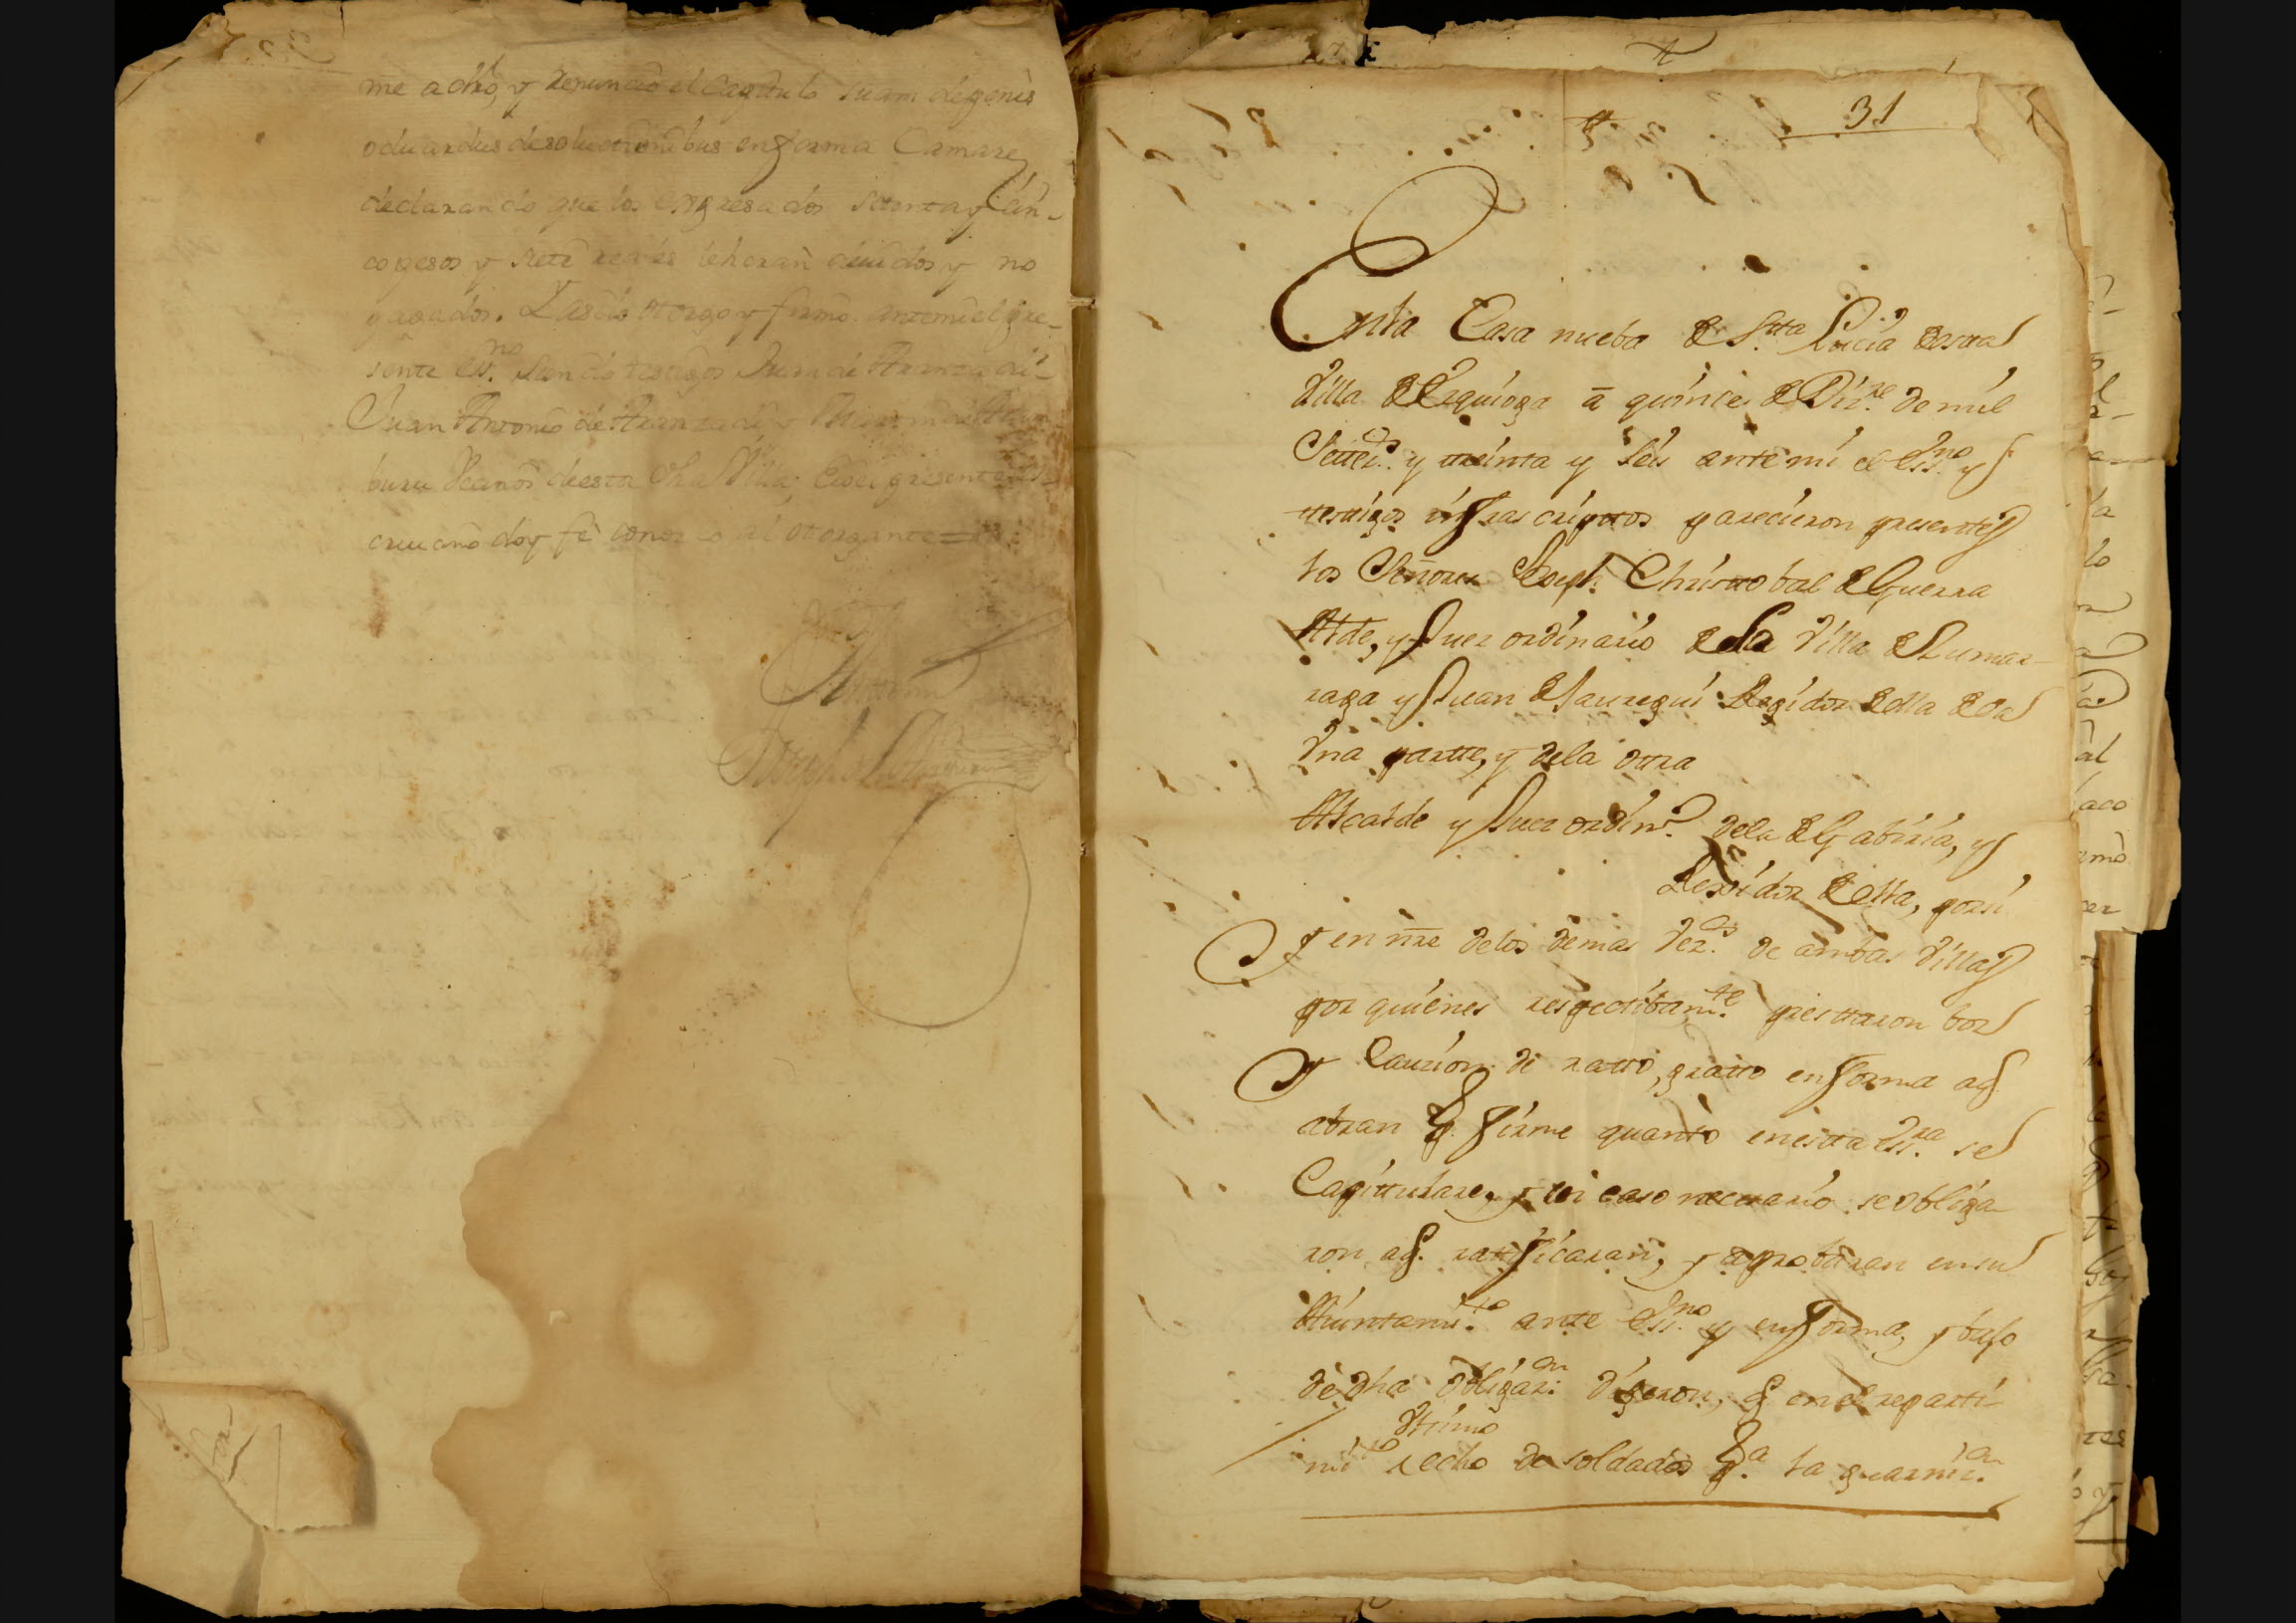 me a dro, y renuncio el Capitulo suam de penis
oduardus de solucttionibus en forma Camare
declarando que los expresados settenta y Cin-
co pesos y siete reales le heran deuidos y no
pagados. Y assi lo otorgo y firmo antemi el pre-
sente ess.no siendo testigos Juan de Aranzadi
Juan Antonio de Aranzadi y
buru Vecinos de esta dha Villa; e yo el presente es-
criuano doy fe conozco al otorgante=
31
Enla Casa nueba de S.tta Lucia de esta
Villa de Ezquioga a quince de Diz.re de mil
Settez.os y treinta y seis ante mi el ess.no y
testigos infrascriptos parecieron presentes
los Señores Joseph Christobal de Guerra
Alde, y Juez ordinario de la Villa de Zumar-
raga y Juan de Jauregui Regidor de ella de la
Vna partte, y dela otra
Alcalde y Juez ordin.o dela de Gabiria, y
Rexidor de ella, por si
y en nre delos demas vez.os de ambas Villas
por quienes respectibam.te presttaron boz
y Caucion de ratto, gratto en forma a q.
abran p. firme quanto en estta ess.ra se
Capittulare, y en caso necesario se obliga-
ron a q. rattificaran, y aprobaran en su
Aiuntami.to ante ess.no y en forma, y bajo
de dha obligaz.on dijeron, q en el reparti-
Vltimo
mi.to echo de soldados p.a la guarniz.on